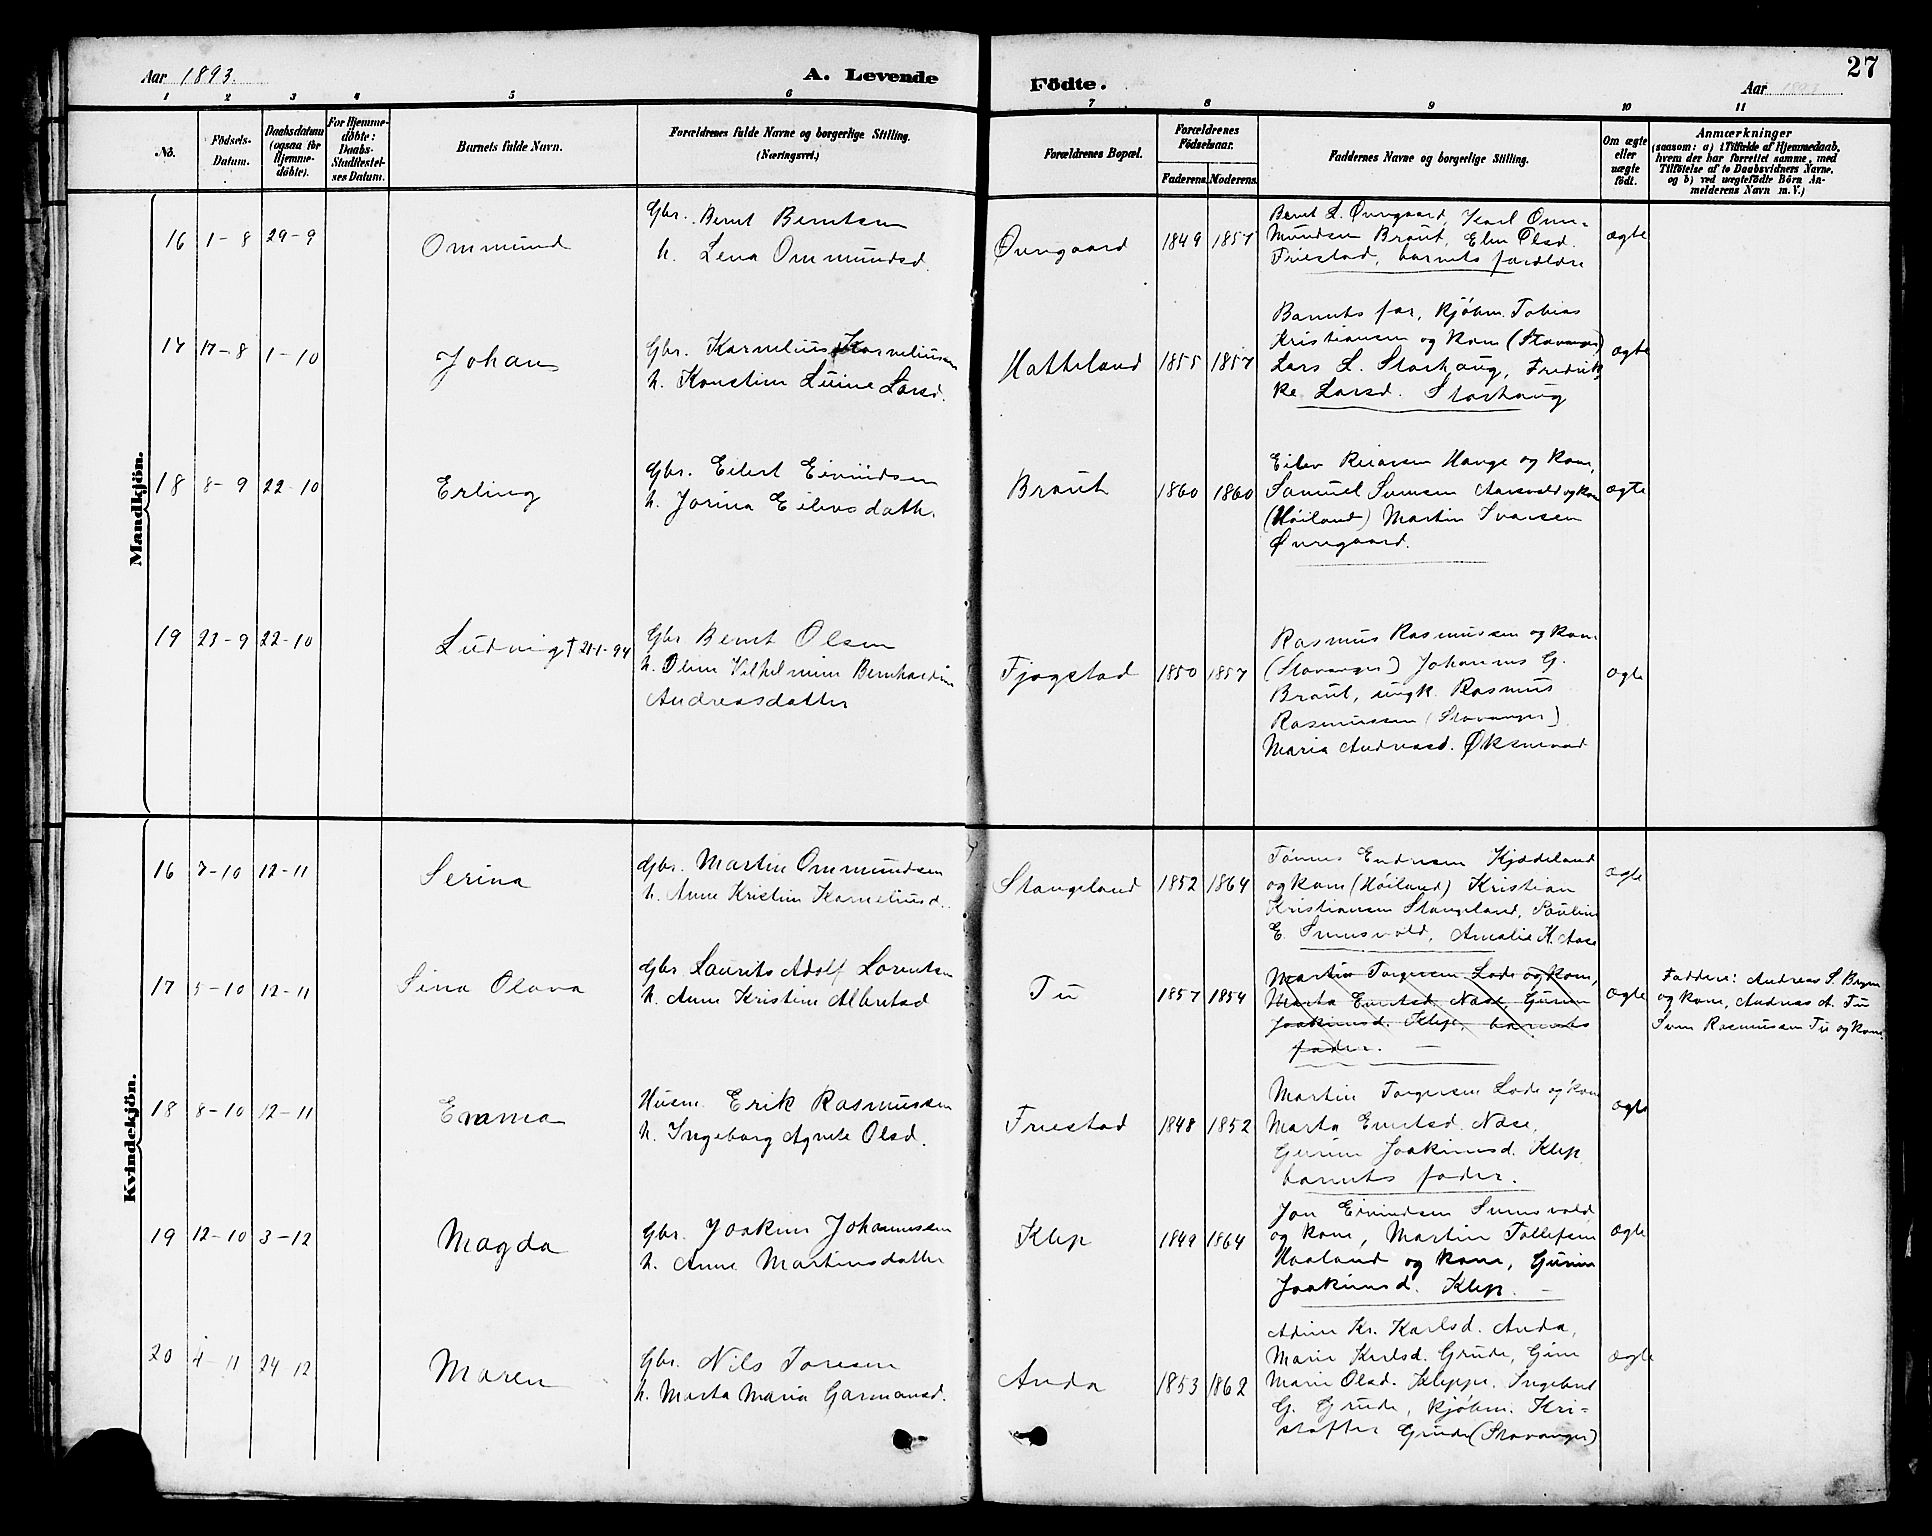 Aar 1893.
A. Levende
Födte.
Aar 1893
27
1 2 3 4 5 6 7 8 9 10 11
No.
Födsels-
Datum.
Daabsdatum
(ogsaa for
Hjemme-
döbte).
For Hjemme-
döbte:
Daabs-
Stadfæstel-
ses Datum.
Barnets fulde Navn.
Forældrenes fulde Navne og borgerlige Stilling.
(Næringsvei.)
Forældrenes Bopæl.
Forældrenes
Födselsaar.
Faderens. Moderens.
Faddernes Navne og borgerlige Stilling.
Om ægte
eller
uægte
födt.
Anmærkninger
(saasom: a) i Tilfælde af Hjemmedaab,
hvem der har forrettet samme, med
Tilföielse af to Daabsvidners Navne,
og b) ved uægtefödte Börn An-
melderens Navn m. V.)
Mandkjön.
16 1-8 29-9
Ommund
Gbr. Bernt Berntsen
h. Lena Ommundsd.
Øvregaard 1849 1857
Bernt L. Øvregaard, Karl Om-
mundsen Braut, Elen Olsd.
Friestad, barnets forældre
ægte
17 17-8 1-10
Johan
Gbr. Kornelius Korneliusen
h. Konstine Luine Larsd.
Hatteland 1855 1857
Barnets far, kjøbm. Tobias
Kristiansen og kone (Stavanger)
Lars L. Storhaug, Fredrik-
ke Larsd. Storhaug
ægte
18 8-9 22-10
Erling
Gbr. Eilert Eivindsen
h. Jorina Eilevsdatter
Braut 1860 1860
Eilev Hauge og kone,
Samuel Svensen og kone
(Høiland) Martin Ivarsen
Øvregaard.
ægte
19 23-9 22-10
Ludvig † 21-1-94
Gbr Bernt Olsen
h. Oline Vilhelmine Bernhardine
Andreasdatter
Fjogstad 1850 1857
Rasmus Rasmussen og kone
(Stavanger) Johannes G.
Braut, ungk. Rasmus
Rasmussen (Stavanger)
Maria Andreasd. Øksnevad
ægte
Kvindekjön.
16 7-10 12-11
Serina
Gbr. Martin Ommundsen
h. Anne Kristine Korneliusd.
Stangeland 1852 1864
Tønnes Endresen Kjædeland
og kone (Høiland) Kristian
Kristiansen Stangeland, Pauline
E. Sunsvold, Amalie K. Aase
ægte
17 5-10 12-11
Sina Olava
Gbr. Laurits Adolf Lorentsen
h. Anne Kristine Albretsd
Tu 1857 1854
Martin Torgersen Lode og kone,
Marta Evertsd. Næse, Guren
Joakimsd. Klep, barnets
fader. —
ægte
Faddere: Andreas S. Bryne
og kone, Andreas A. Tu
Sven Rasmussen Tu og kone.
18 8-10 12-11
Emma
Husm. Erik Rasmussen
h. Ingeborg Agnete Olsd.
Friestad 1848 1852
Martin Torgersen Lode og kone
Marta Evertsd. Næse,
Guren Joakimsd. Klep
barnets fader.
ægte
19 12-10 3-12
Magda
Gbr. Joakim Johannessen
h. Anne Martinsdatter
Klep 1849 1864
Jon Eivindsen Sunsvold
og kone, Martin Tollefsen
Haaland og kone, Guren
Joakimsd. Klep. —
ægte
20 4-11 24-12
Maren
Gbr. Nils Toresen
h. Marta Maria Garmannsd.
Anda 1853 1862
Adine Kr. Karlsd. Anda,
Marie Karlsd. Grude, Gine
Marie Olsd. Kleppe, Ingebret
G. Grude, kjøbm. Kri-
stoffer Grude (Stavanger)
ægte